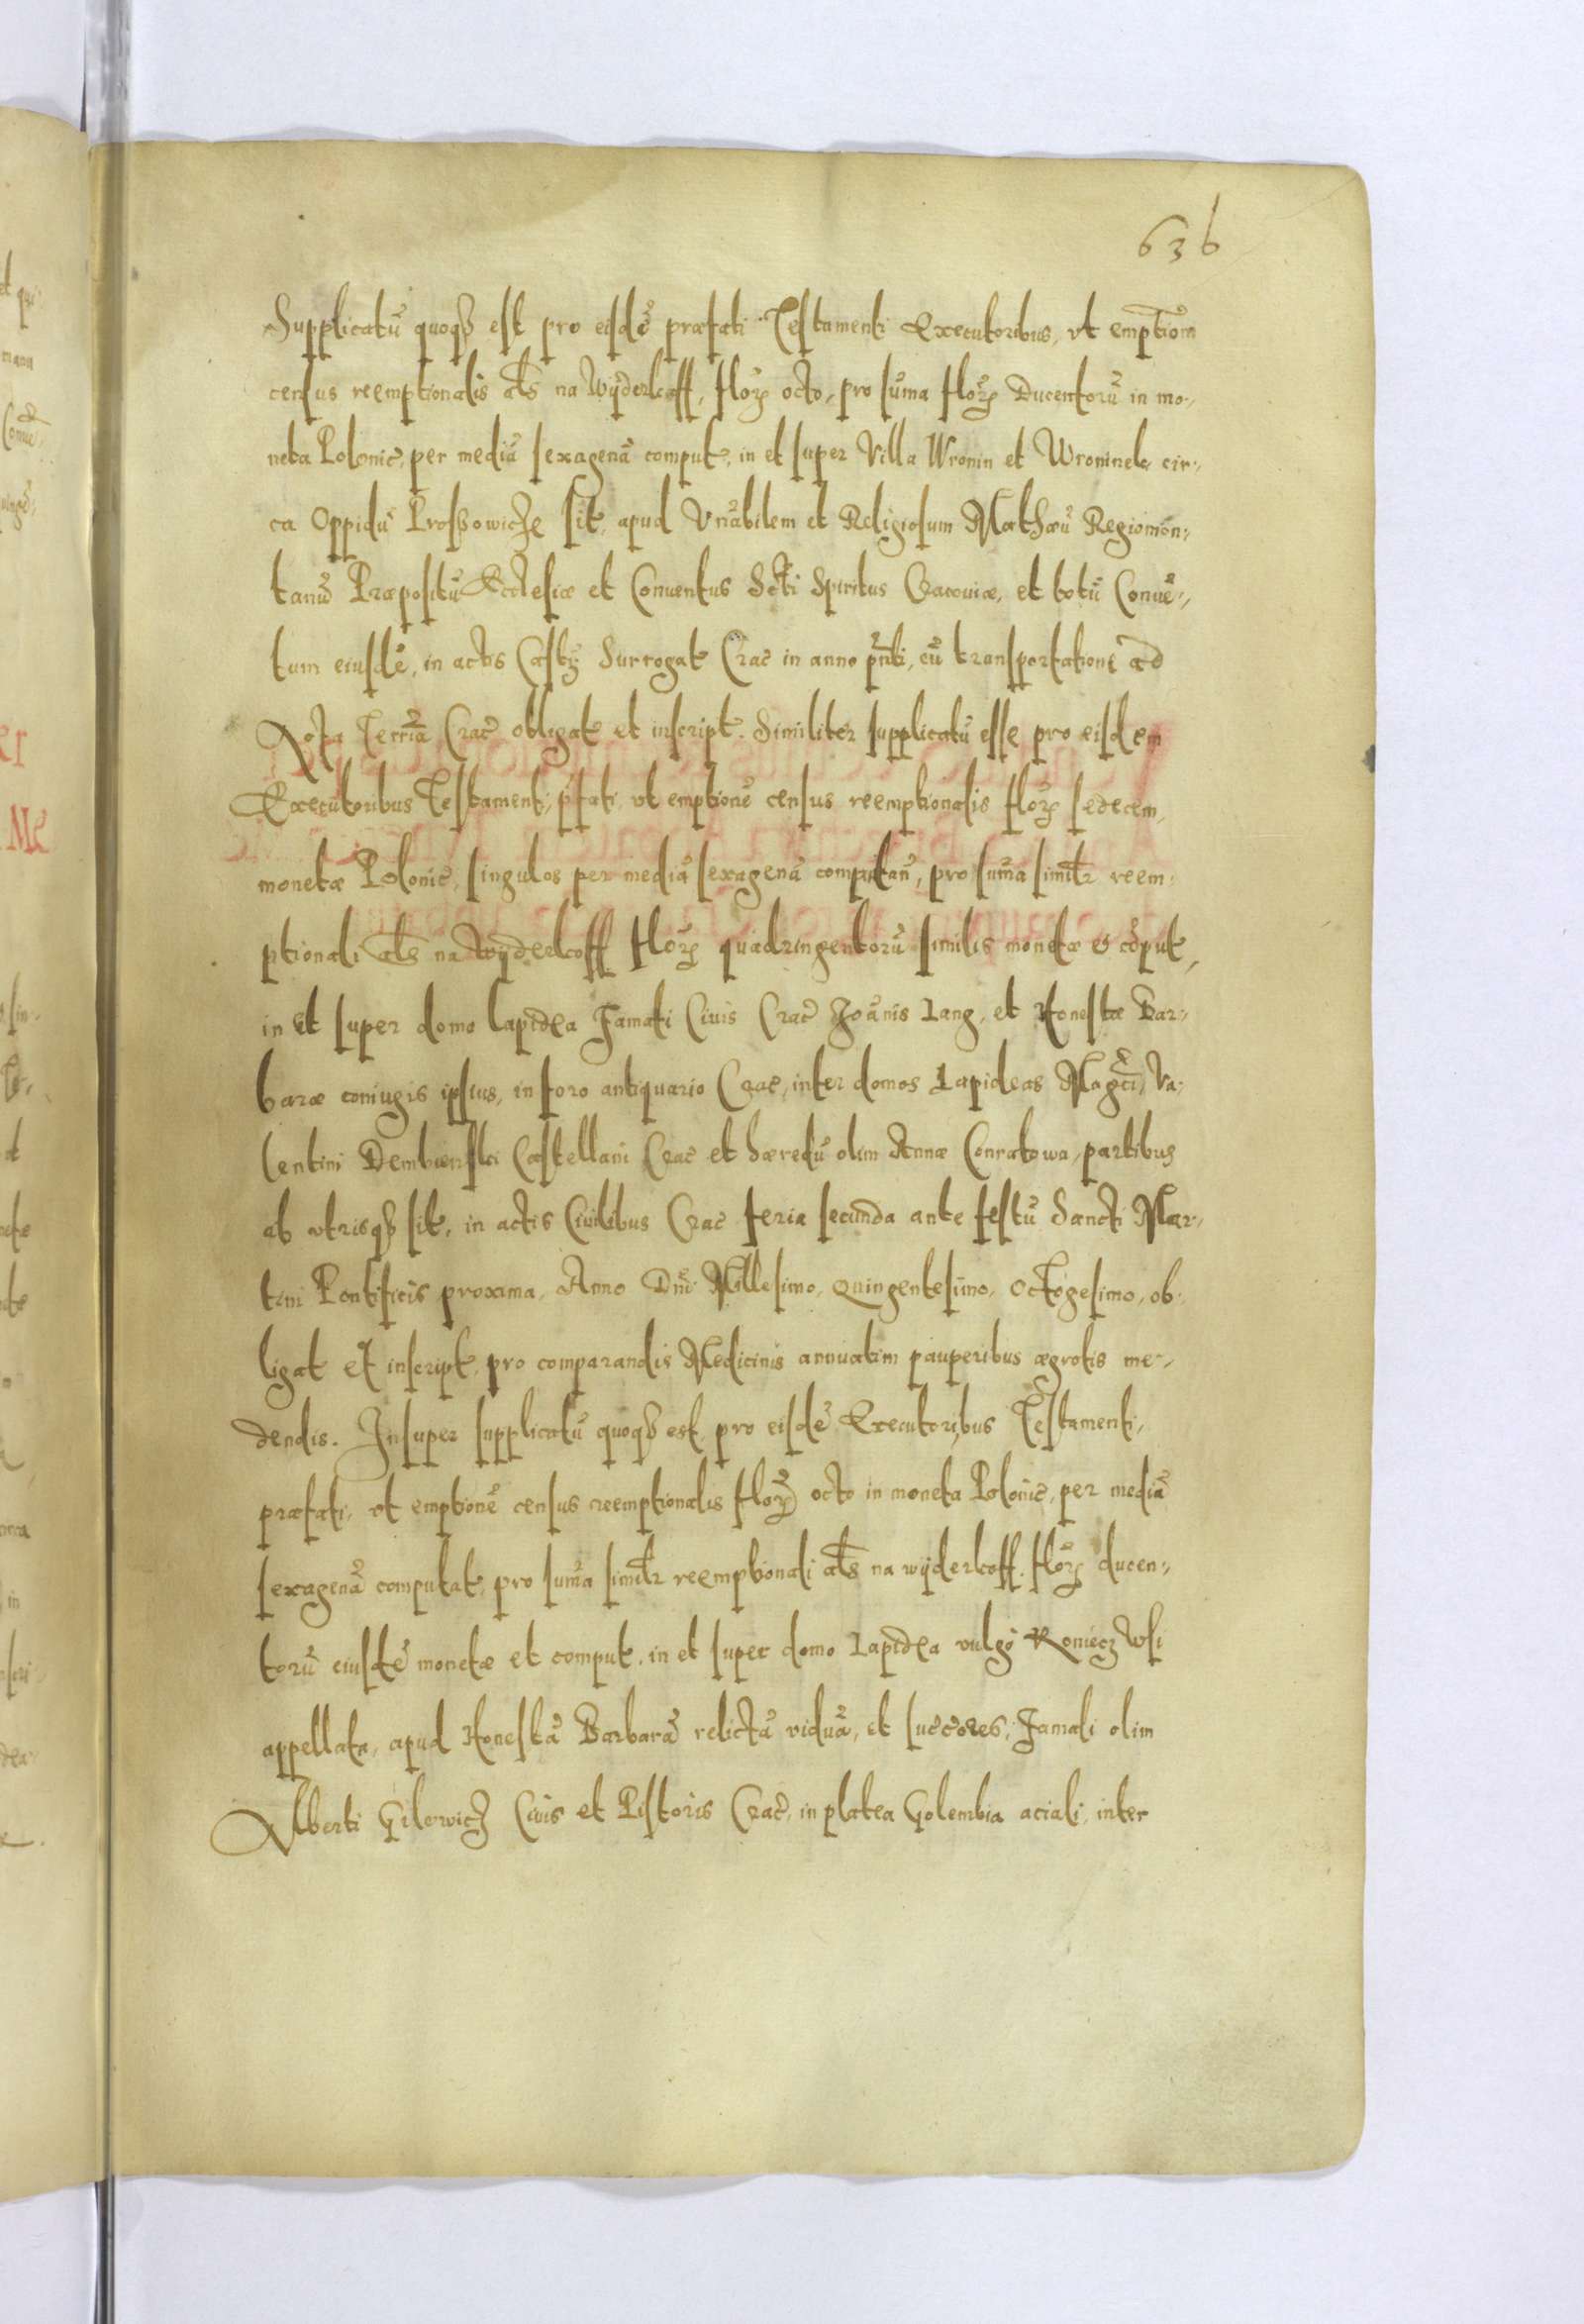 636
Supplicatū quoqȝ est pro eisdē præfati Testamenti Executoribus, vt emptionē
census reemptionalis als na Wyderkaff, florȝ octo, pro suma florȝ Ducentorū in mo-
neta Polonic, per mediā sexagenā comput, in et super Villa Wronin et Wroninek cir-
ca Oppidū Prossowicze sit, apud Vnābilem et Religiosum Mathæū Regiomon-
tanū Præpositū Ecclesiæ et Conuentus Scti Spiritus Cracouiæ, et totū Conuē-
tum eiusdē, in actis Castȝ Surrogat Crac in anno pnti, cū transportatione ad
Acta Terria Crac obligat et inscript. Similiter supplicatū esse pro eisdem
Executoribus Testamenti, pfati, vt emptionē census reemptionalis florȝ sedecem,
monetæ Polonic, singulos per mediā sexagenā computan, pro suma similr reem-
ptionali als na Wyderkoff florȝ quadringentorū similis monetæ et cōput,
in et super domo lapidea Famati Ciuis Crac Joānis Lang, et Honestæ Bar-
baræ coniugis ipsius, in foro antiquario Crac, inter domos Lapideas Magci, Va-
lentini Dembienski Castellani Crac et hæredū olim Annæ Conratowa, partibus
ab vtrisqȝ sit, in actis Ciuilibus Crac feria secunda ante festū Sancti Mar-
tini Pontificis proxima, Anno Dni Millesimo, Quingentesimo, Octogesimo, ob-
ligat et inscript, pro comparandis Medicinis annuatim pauperibus ægrotis me-
dendis. Insuper supplicatū quoqȝ est, pro eisdē Executoribus Testamenti,
præfati, vt emptionē census reemptionalis florȝ octo in moneta Polonic, per mediā
sexagenā computat, pro suma similr reemptionali als na wyderkoff, florȝ ducen-
torū eiusdē monetæ et comput, in et super domo Lapidea vulgo Koniecz Wsi
appellata, apud Honestā Barbarā relictā viduā, et succores, Famati olim
Alberti Gilowicz Ciuis et Pistoris Crac, in platea Golembia aciali, inter